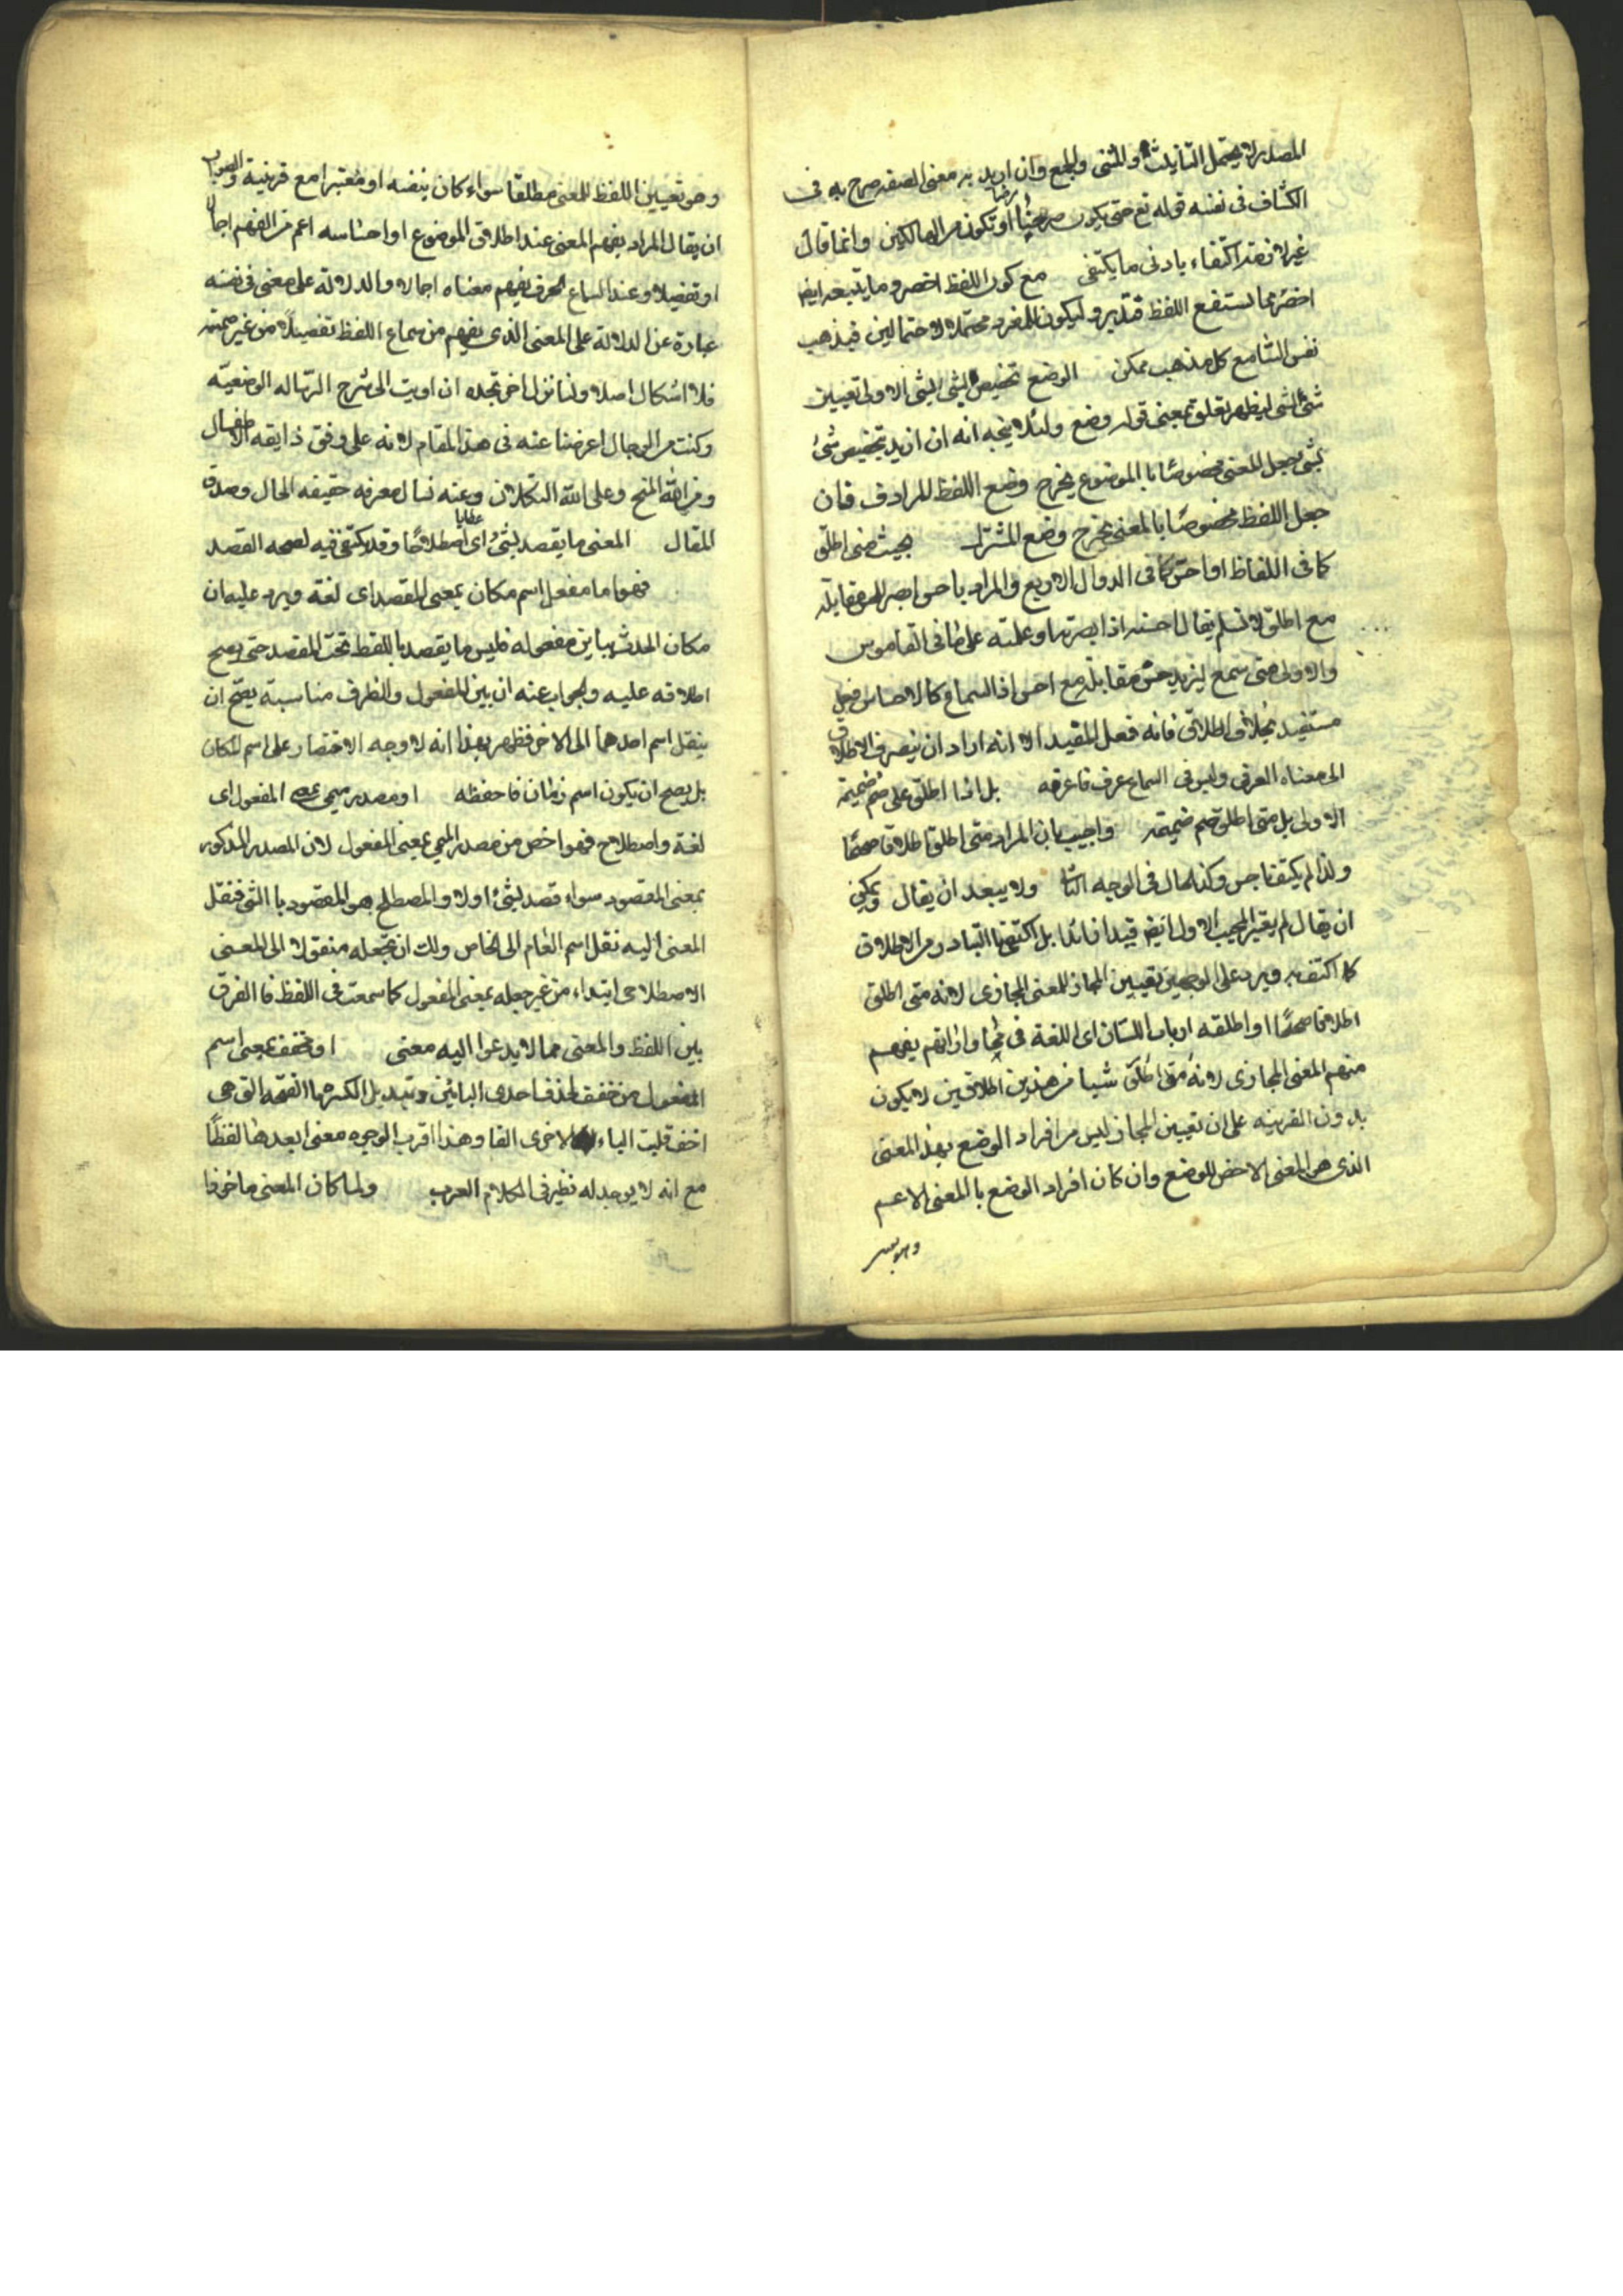 المصدر لا يحتمل التأنيث والمثنى والجمع وان اريد به معنى الصفه صرح به فى
الكشاف فى نفسه قوله تع حتى يكون حرضا او تكون من الهالكين وانما قال
غير لافقه اكتفاء بادنى ما يكتفى مع كون اللفظ اخصر وما يتبعه ايضا
اخصر مما تستقع اللفظ فتدبر وليكون المفرد محتملا لاحتمالين فيذهب
نفس السامع كل مذهب ممكن الوضع تخصيص الشئ بالشئ الاولى تعيين
شئ لشئ ليظهر تعلق بمعنى قوله وضع ولئلا يتجه انه ان اريد تخصيص شئ
بشئ بجعل المعنى مخصوصا با الموضوع يخرج وضع اللفظ المرادف فان
جعل اللفظ مخصوصا با المعنى يخرج وضع المشترك بحيث متى اطلق
كما فى اللفاظ او احس كما فى الدوال الاربع والمراد باحس ابصر للمقابلة
مع اطلق لا تسلم يقال احسه اذا ابصرته او علمته على ما فى القاموس
والاولى متى سمع ليزيد حسن مقابلة مع احس اذ السماع كالاحساس فعل
مستفيد بخلاف اطلاق فانه فعل المفيد الا انه اراد ان ينصرف الاطلاق
الى معناه العرفى وليس فى السماع عرف فاعرفه بل اذا اطلق على ضم ضميمة
الاولى بل متى اطلق ضم ضميمته واجيب بان المراد متى اطلق اطلاقا صحيحا
ولذا لم يكتف باحس وكذلك الحال فى الوجه الثانى ولا يبعد ان يقال ويمكن
ان يقال لم يغير المجيب الاول ايض قيدا زائدا بل اكتفى با التبادر من الاطلاق
كما اكتفى به ويرد على الوجهين تعيين المجاز للمعنى المجازى لانه متى اطلق
اطلاقا صحيحا او اطلقه ارباب اللسان اى اللغة فى محاوراتهم يفهم
منهم المعنى المجازى لانه متى اطلق شيا من هذين اطلاقين لا يكون
بدون القرينه على ان تعيين المجاز ليس من افراد الوضع بهذا المعنى
الذى هو المعنى الاخص للوضع وان كان افراد الوضع با المعنى الاعم
وهو تعيين
وهو تعيين اللفظ للمعنى مطلقا سواء كان بنفسه او معتبرا مع قرينية والصواب
ان يقال المراد بفهم المعنى عند اطلاق الموضوع او احساسه اعم من الفهم اجمالا
او تفصيلا وعند السماع الحرف يفهم معناه اجمالا والدلالة على معنى فى نفسه
عبارة عن الدلالة على المعنى الذى يفهم من سماع اللفظ تفصيلا من غير ضميمته
فلا اشكال اصلا ولنا نزل اخر تجده ان اويت الى شرح الرساله الوضعيه
وكنت من الرجال اعرضنا عنه فى هذا المقام لانه على وفق ذايقه الاطفال
ومن الله المنح وعلى الله التكلان وعنه نسال معرفه حقيقه الحال وصدق
المقال المعنى ما يقصد بشئ اى اصطلاحا وقد يكتفى فيه لصحه القصد
فهو اما مفعل اسم مكان بمعنى المقصد اى لغة ويرد عليه ان
مكان الحدث يباين مفعوله فليس ما يقصد با اللفظ تحت المقصد حتى يصح
اطلاقه عليه والجواب عنه ان بين المفعول والظرف مناسبة يصح ان
ينقل اسم احدهما الى الاخر فظهر بهذا انه لا وجه الاختصار على اسم المكان
بل يصح ان يكون اسم زمان فاحفظه او مصدر ميمى بمعنى المفعول اى
لغة واصطلاح فهو اخص من مصدر الميمى بمعنى المفعول لان المصدر المذكور
بمعنى المقصود سواء قصد بشئ اولا والمصطلح هو المقصود با الشئ فنقل
المعنى اليه نقل اسم العام الى الخاص ولك ان تجعله منقولا الى المعنى
الاصطلاحى ابتداء من غير جعله بمعنى المفعول كما سمعت فى اللفظ فا الفرق
بين اللفظ والمعنى مما لا يدعو اليه معنى او مخفف بمعنى اسم
المفعول من خفف بحذف احدى اليائين وتبديل الكسرة با الفتحه التى هى
اخف قلبت الياء الاخرى الفا وهذا اقرب الوجوه معنى ابعدها لفظا
مع انه لا يوجد له نظير فى الكلام العرب ولما كان المعنى ماخوذا